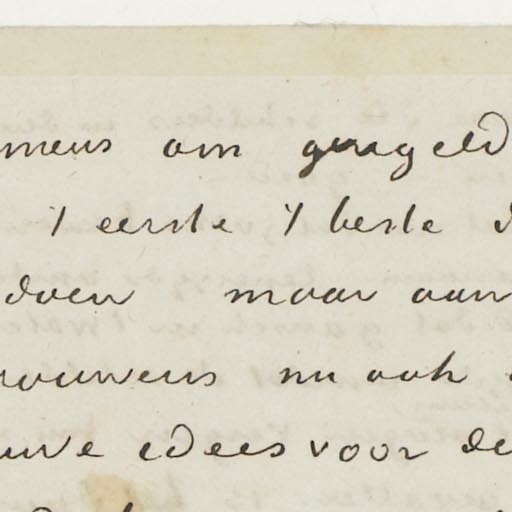 mens om geregeld
't eerste 't beste d
doen maar aan
rouwens nu ook
uwe idees voor de